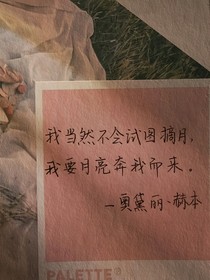 我当然不会试图摘月，
我要月亮奔我而来。
—奥黛丽·赫本
PALETTE